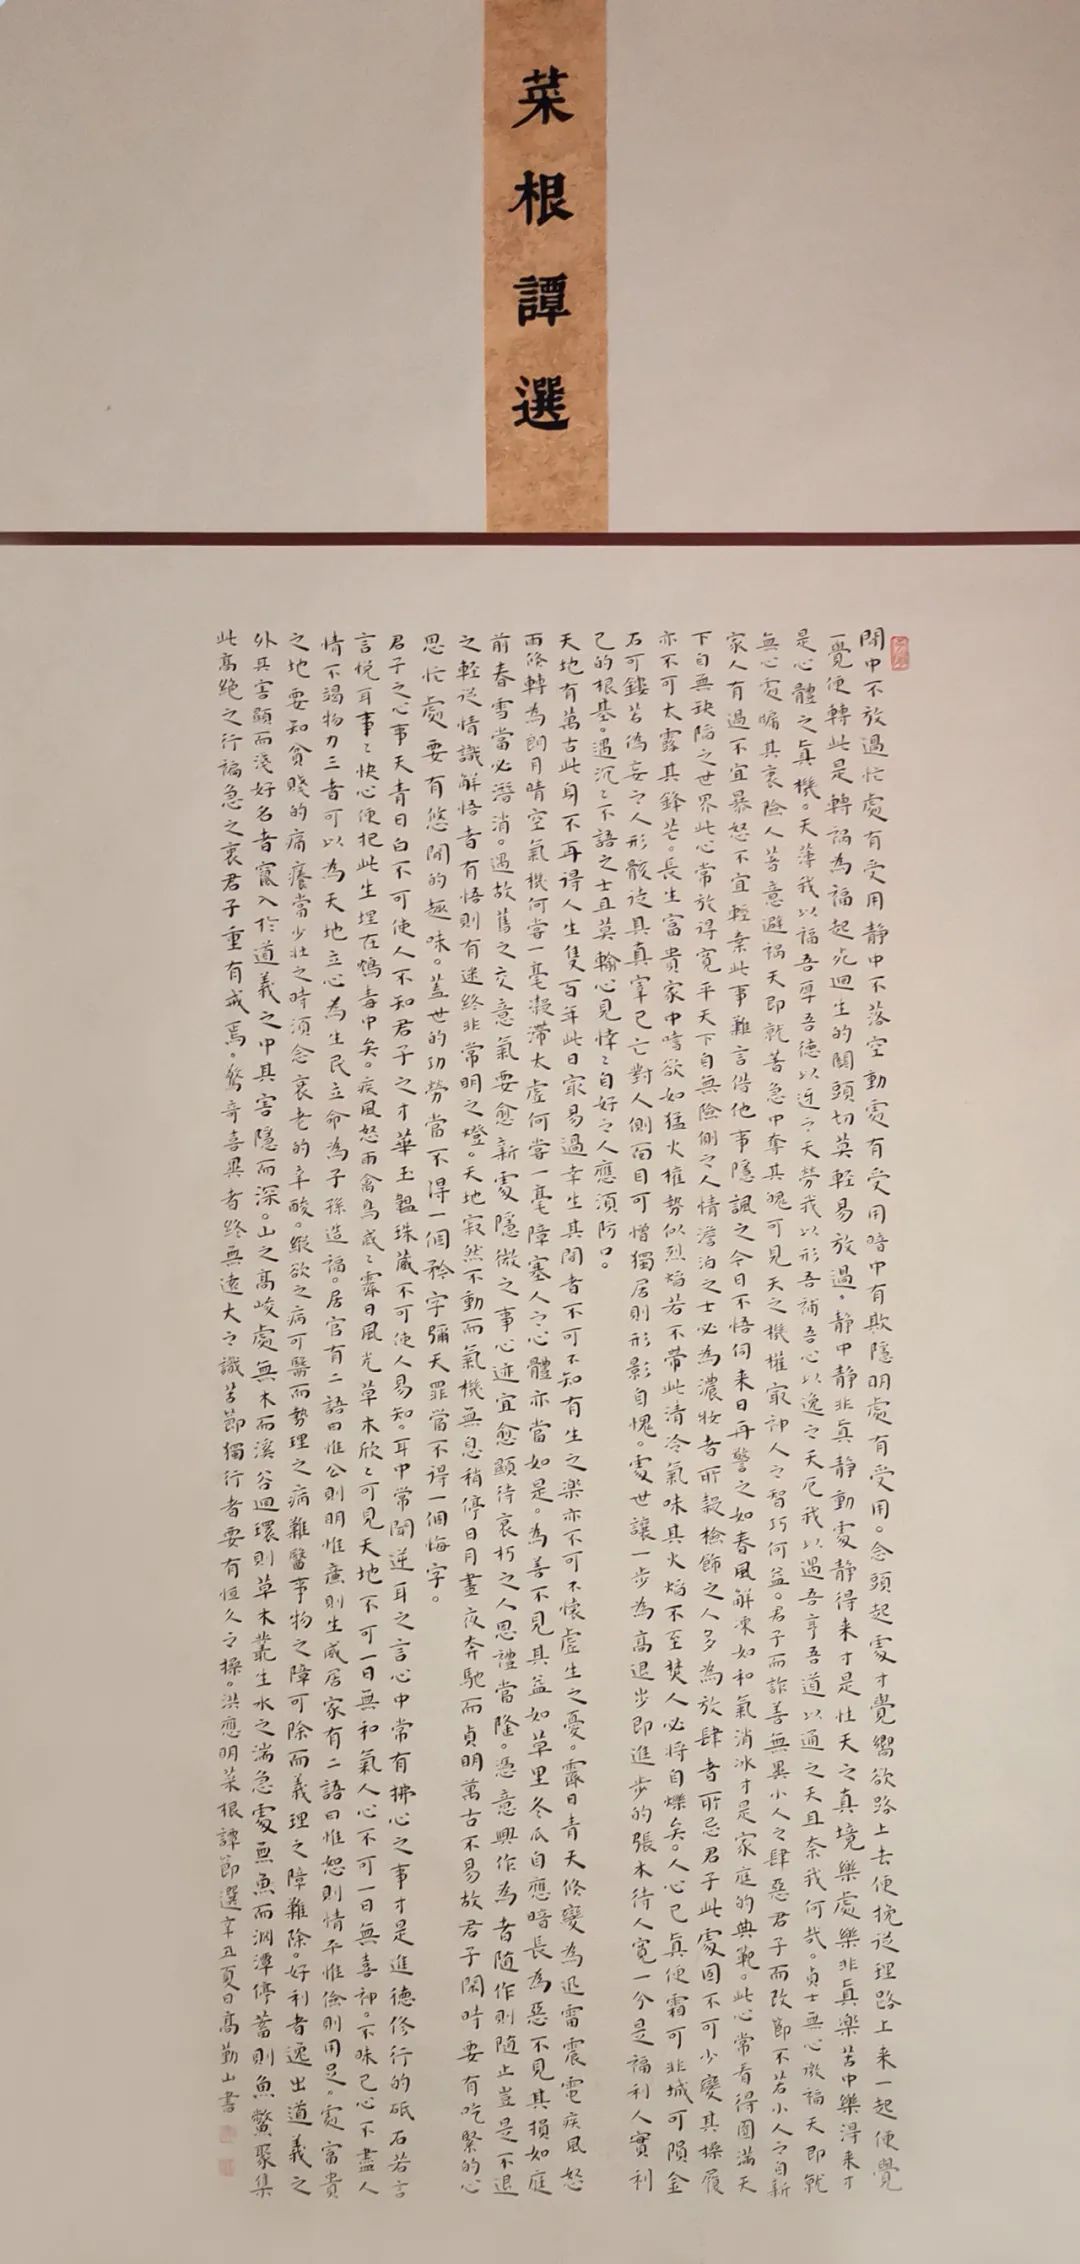 菜根譚選
閑中不放過忙處有受用静中不落空動處有受用暗中有欺隱明處有受用。念頭起處才覺嚮欲路上去便挽從理路上来一起便覺
一覺便轉此是轉禍為福起死迴生的關頭切莫輕易放過。静中静非真静動處静得来才是性天之真境樂處樂非真樂苦中樂得来才
是心體之真機。天薄我以福吾厚吾德以迓之天勞我以形吾補吾心以逸之天厄我以遇吾亨吾道以通之天且奈我何哉。貞士無心徼福天即就
無心處牖其衷險人著意避禍天即就著急中奪其魄可見天之機權最神人之智巧何益。君子而詐善無異小人之肆惡君子而改節不若小人之自新
家人有過不宜暴怒不宜輕棄此事難言借他事隱諷之今日不悟伺来日再警之如春風解凍如和氣消冰才是家庭的典範。此心常看得圓滿天
下自無缺陷之世界此心常放得寬平天下自無險側之人情澹泊之士必為濃妝者所疑檢飾之人多為放肆者所忌君子此處固不可少變其操履
亦不可太露其鋒芒。長生富貴家中嗜欲如猛火權勢似烈焰若不帶些清冷氣味其火焰不至焚人必將自爍矣。人心已真便霜可非城可隕金
石可鏤若偽妄之人形骸徒具真宰已亡對人側面目可憎獨居則形影自愧。處世讓一步為高退步即進步的張本待人寬一分是福利人實利
己的根基。遇沉沉不語之士且莫輸心見悻悻自好之人應須防口。
天地有萬古此身不再得人生隻百年此日最易過幸生其間者不可不知有生之樂亦不可不懷虚生之憂。霽日青天倏變為迅雷震電疾風怒
雨倏轉為朗月晴空氣機何嘗一毫凝滞太虚何嘗一毫障塞人之心體亦當如是。為善不見其益如草里冬瓜自應暗長為惡不見其損如庭
前春雪當必潛消。遇故舊之交意氣要愈新處隱微之事心迹宜愈顯待衰朽之人恩禮當愈隆。憑意興作為者随作則随止豈是不退
之輕從情識解悟者有悟則有迷終非常明之燈。天地寂然不動而氣機無息稍停日月晝夜奔馳而貞明萬古不易故君子閑時要有吃緊的心
思忙處要有悠閑的趣味。蓋世的功勞當不得一個矜字彌天罪當不得一個悔字。
君子之心事天青日白不可使人不知君子之才華玉韞珠藏不可使人易知。耳中常聞逆耳之言心中常有拂心之事才是進德修行的砥石若言
言悦耳事事快心便把此生埋在鴆毒中矣。疾風怒雨禽鳥戚戚霽日風光草木欣欣可見天地不可一日無和氣人心不可一日無喜神。不昧己心不盡人
情不竭物力三者可以為天地立心為生民立命為子孫造福。居官有二語曰惟公則明惟廉則生威居家有二語曰惟恕則情平惟儉則用足。處富貴
之地要知貧賤的痛癢當少壮之時須念衰老的辛酸。縱欲之病可醫而勢理之病難醫事物之障可除而義理之障難除。好利者逸出道義之
外其害顯而淺好名者竄入於道義之中其害隱而深。山之高峻處無木而溪谷迴環則草木叢生水之湍急處無魚而淵潭停蓄則魚鱉聚集
此高絶之行褊急之衷君子重有戒焉。驚奇喜異者終無遠大之識苦節獨行者要有恒久之操。洪應明菜根譚節選辛丑夏日高勤山書